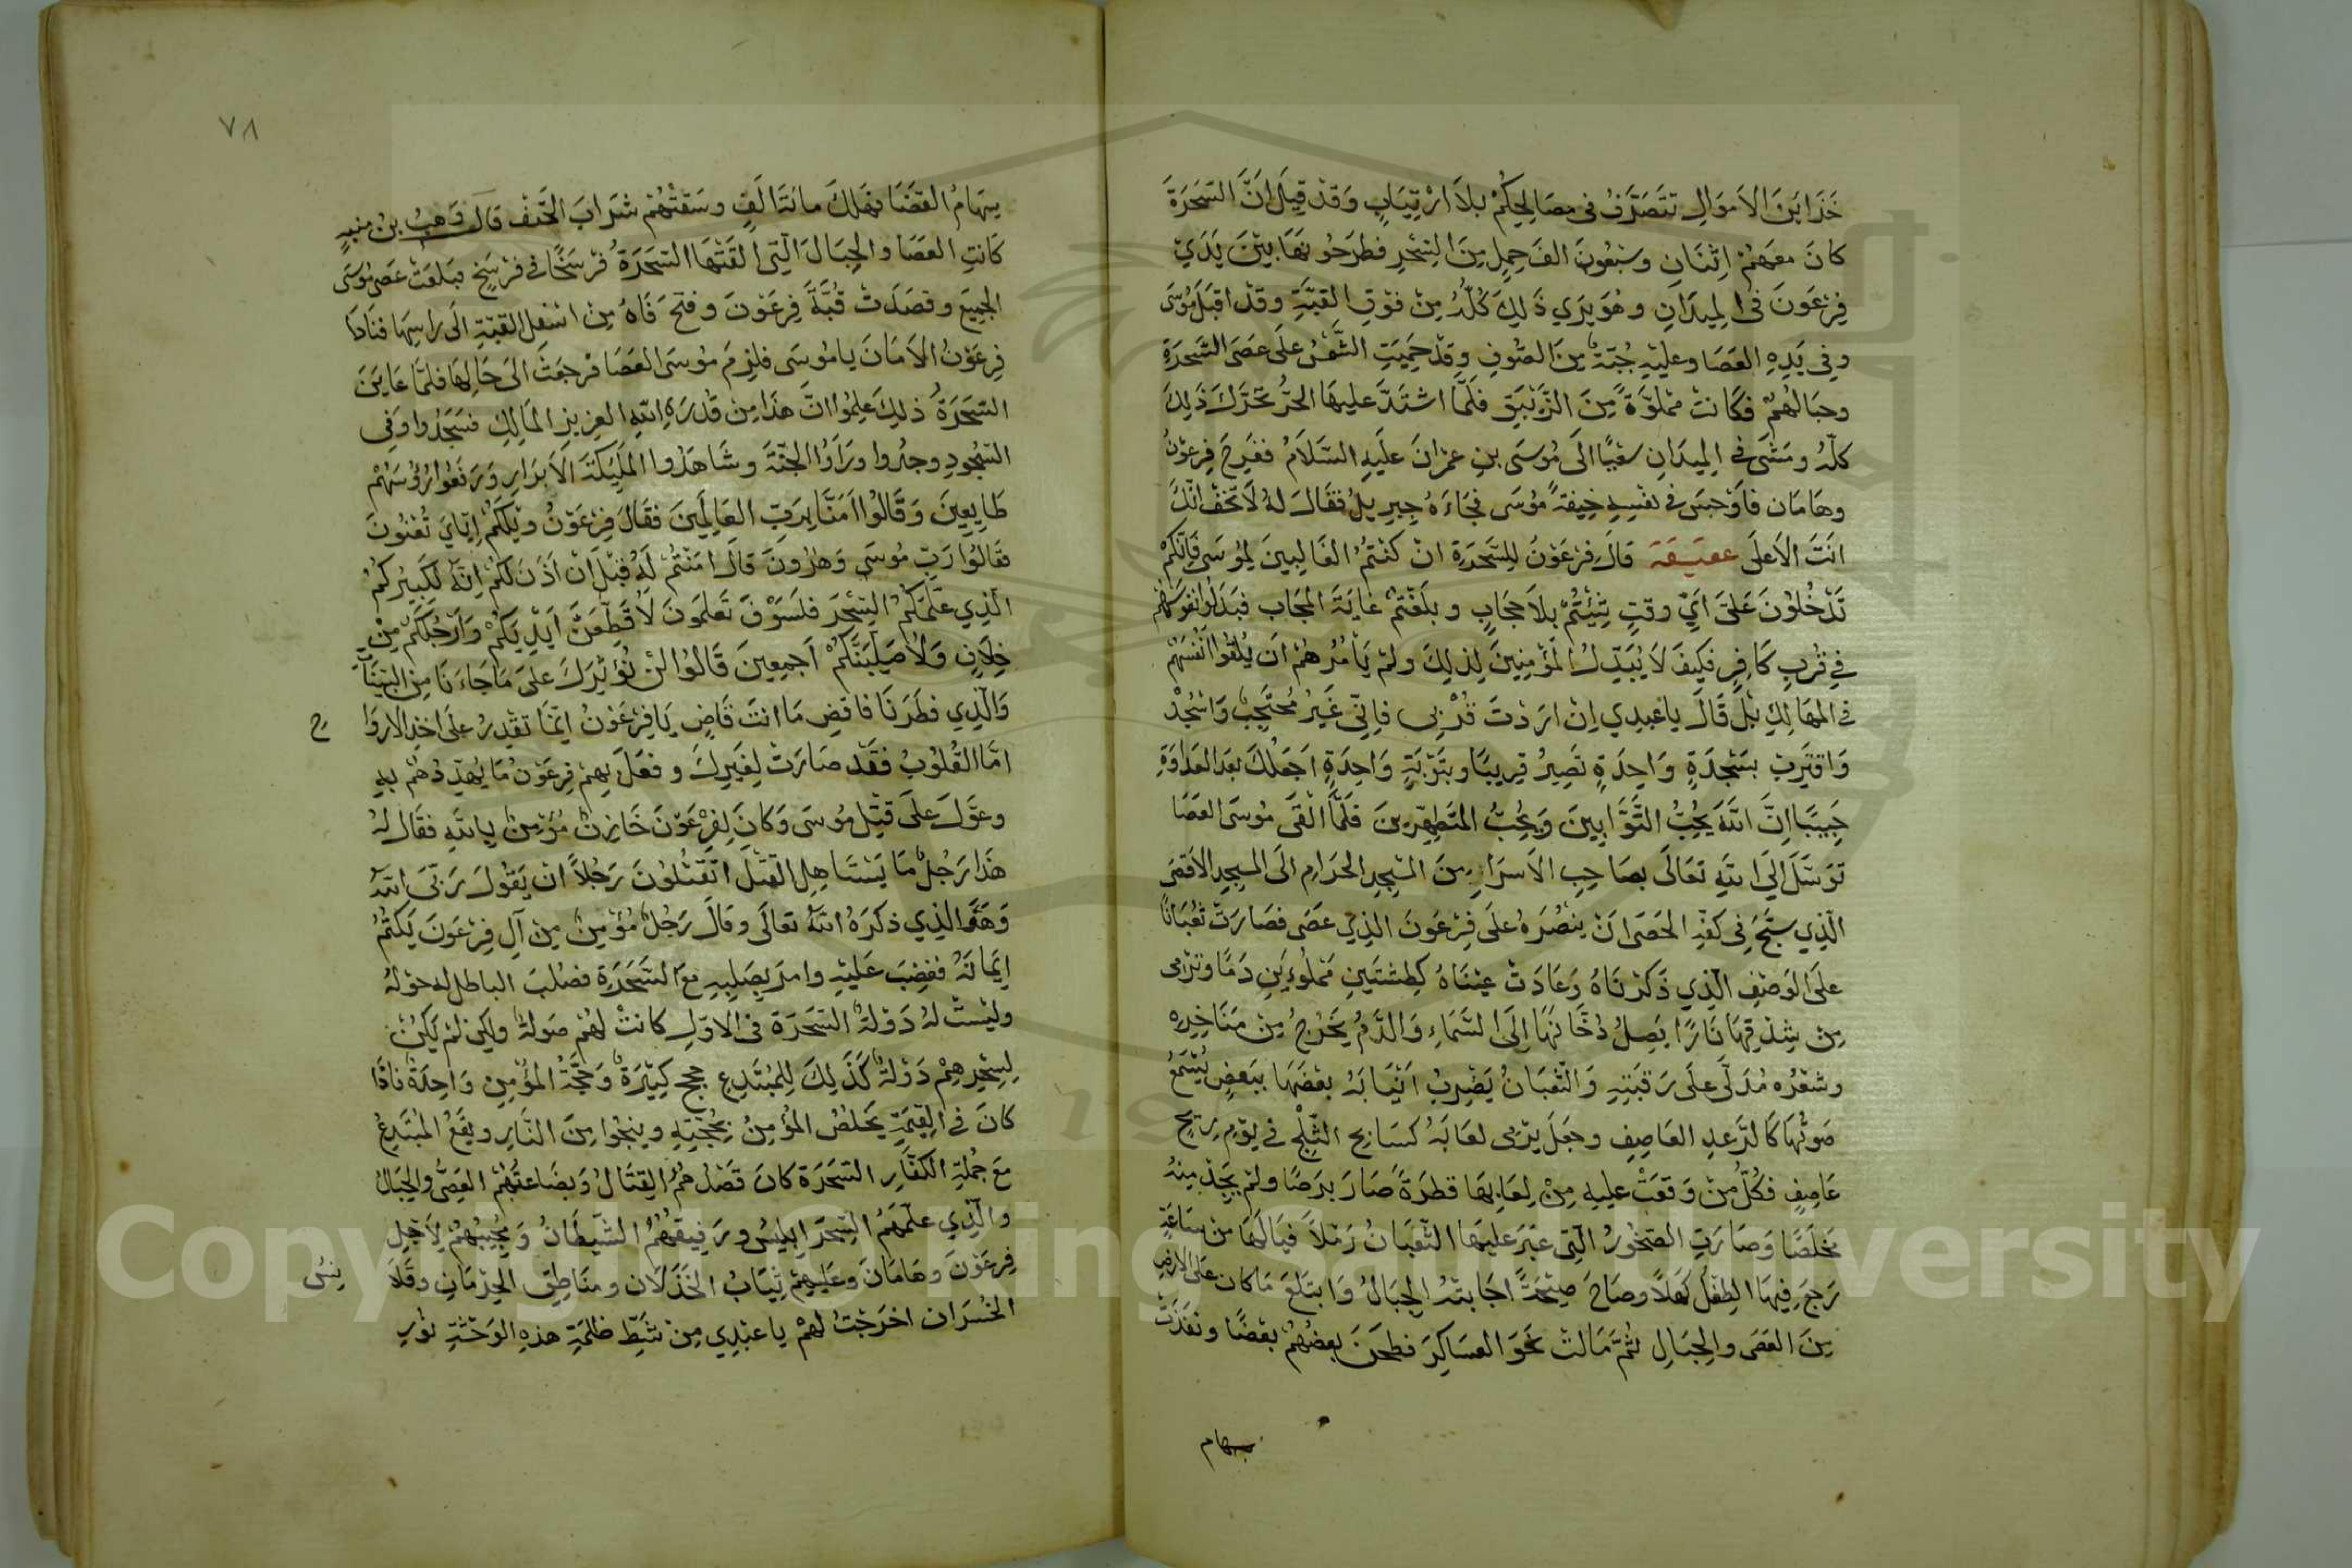 خَزَايِنَ الاَموَالِ تتَصَرَّفُ فى مصَالِحِكُمْ بلاَ ارْتِيَابٍ وَقدْ قِيلَ اَنَّ السَّحَرَةَ
كانَ معَهُمْ اِثنَانِ وسَبْعُونَ الفَ حِملٍ مِنَ السِّحْرِ فطرَحُوهَا بيْنَ يَدَيْ
فِرْعَونَ فى المِيدَانِ وهُوَ يَرَي ذَلِكَ كُلَّهُ مِنْ فوْقِ القبَّةِ وقدْ اقبَلَ مُوسَى
وفِي يَدِهِ العَصَا وعليْهِ جُبَّةٌ مِنَ الصُّوفِ وقدْ حَمِيَتِ الشَّمْسُ علَى عصَى السَّحَرَةِ
وحبَالهُمْ فكَانتْ مَملوَّةً مِنَ الزَّيْبَقِ فلَمَّا اشتَدَّ عليهَا الحَرُّ تحَرَّكَ ذَلِكَ
كلُّهُ ومَشَى فِي المِيدَانِ سعْيًا الَى مُوسَى بنِ عمْرَانَ علَيهِ السَّلاَمُ ففَرِحَ فِرعوْنُ
وهَامَان فاَوْجسَ فِى نفْسِهِ خِيفةً مُوسَى فجَاءَهُ جِبريلُ فقَالَ لهُ لاَ تخَفْ انَّكَ
انتَ الاَعلَى عقيقة قالَ فِرْعَوْنُ لِلسَّحَرَةِ انْ كنْتُمْ الغَالِبينَ لِمُوسَى فَاِنَّكمْ
تَدْخُلوْنَ عَلَيَّ اَيَّ وقتٍ شِئْتُمْ بلاَ حِجابٍ وبلَغْتمْ غايَةَ المحَاب فبَذَلوا نفوسَهُمْ
فِي قرْبِ كافِرٍ فكيفَ لاَ يُبَذِّلُ المؤْمِنِينَ لِذلِكَ ولمْ يَأمُرْهمْ اَن يُلقُوا انْفُسَهُمْ
فى المهَالِكِ بَلْ قَالَ ياعَبدِي اِنْ ارَدْتَ قُرْبِى فاِنِّى غَيْرُ مُحْتَجِبٍ وَاسْجُدْ
وَاقترِبْ بسَجْدَةٍ وَاحِدَةٍ تَصِيرُ قرِيبًا وبتَوْبَةٍ وَاحِدَةٍ اَجعَلُكَ بعْدَ العَدَاوَةِ
حَبِيبًا اِنَّ اللهَ يُحِبُّ التَّوَّابِينَ وَيُحِبُّ المتَطهِّرِينَ فلَمَّا الْقَى مُوسَى العَصَا
توَسَّلَ اِلَى اللهِ تعَالَى بصَاحِبِ الاَسرَارِ مِنَ المسْجِدِ الحَرَامِ الَى المسجِدِ الاَقصَى
الّذِي سبَّحَ فِى كَفِّهِ الحَصَى اَنْ يَنْصُرَهُ علَى فِرْعَوْنَ الذِي عَصَى فصَارَتْ ثعْبَانًا
علَى الوَصْفِ الّذِي ذَكَرْنَاهُ وَعَادَتْ عيْنَاهُ كطِشْتَيْنِ مَمْلوءَينِ دَمًا وترْمى
مِنْ شِدْقِهَا نَارًا يَصِلُ دُخَانهَا اِلَى السَّمَاءِ وَالدَّمُ يَخْرُجُ مِنْ مَنَاخِرِهِ
وشعْرُه مُدَلَّى علَى رَقبَتِهِ وَالثّعْبَانُ يَضْرِبُ اَنيَابَهُ بعْضَهَا ببَعضٍ يُسْمَعُ
صَوْتُهَا كَالرَّعدِ العَاصِفِ وجعَلَ يرْمى لعَابَهُ كسَايِحِ الثَّلْجِ فى يَوْمِ رِيحٍ
عَاصِفٍ فكُلُّ مَنْ وَقعَتْ عليهِ مِنْ لِعَابِهَا قطرَةً صَارَ برَصًا ولمْ يَجِدْ مِنهُ
مَخلَصًا وَصَارَتِ الصّخورُ الّتِى عَبَرَ عليهَا الثّعْبَانُ رَمْلاً فيَالَهَا مِن سَاعَةٍ
رَجعَ فِيهَا الطِّفْلُ كهْلاً وصَاحَ صَيْحَةً اجَابتْهُ الجِبَالُ وَابتَلعَ مَا كان علَى الارضِ
مِنَ العَصَى والحِبَالِ ثُمَّ مَالَتْ نَحْوَ العسَاكِرَ فطحَنَ بعضُهُمْ بعْضًا ونفَذَتْ
سهام
٧٨
سِهَامُ القضَا فهَلكَ مائتَا الَفٍ وسَقتْهُمْ شرَابَ الحَتْفِ قال وَهبُ بن منبهٍ
كَانتِ العَصَا والحِبَالَ الّتِى القتْهَا السّحَرَةُ فرْسَخًا في فرْسَخٍ فبَلعَتْ عَصى مُوسَى
الجمِيعَ وقصَدَتْ قُبَّةَ فِرعَوْنَ وفتَحَ فَاهُ مِنْ اسْفلِ القبّةِ الَى رَاسِهَا فنَادَا
فِرعَوْنُ الاَمَانَ يا مُوسَى فلزِمَ مُوسَى العَصَا فرجعَتْ الىَ حَالِهَا فلمَّا عَايَنَ
السّحَرَةُ ذلِكَ علِمُوا انَّ هَذا مِنْ قُدْرَةِ اللهِ العزيزِ المَالِكِ فسَجَدُوا وَفِى
السّجُودِ وجدُوا ورَاَوُا الجنَّةَ وشَاهَدُوا المَلَيكَةَ الاَبرَارِ وَرَفعُوا رُؤُسَهُمْ
طَايِعِينَ وَقَالُوا اَمَنَّا بِرَبِّ العَالَمِينَ فقَالَ فِرْعَوْنُ ويْلَكُمْ اِيّايَ تُعْنُونَ
فقَالُوا رَبِّ مُوسَى وَهٰرُونَ قالَ امَنتُمْ لَهُ قبْلَ اَنْ اَذنَ لكُمْ اِنّهُ لَكَبِيرُكُمُ
الّذِي علّمَكُمُ السِّحْرَ فلسَوْفَ تَعلَمونَ لَاُقَطِّعَنَّ اَيْدِيَكُمْ وَاَرْجُلَكُمْ مِنْ
خِلَافٍ وَلَاُصَلِّبَنَّكُمْ اَجمعِينَ قَالُوا لنْ نُؤْثِرَكَ علىَ مَا جَاءَنَا مِنَ البيّنَاتِ
وَالّذِي فطَرَنَا فاقضِ مَا انتَ قَاضٍ يَا فِرْعَوْنُ اِنّمَا تقْدِرُ علَى اخذِ الارْوَا ح
امَّا القُلُوبُ فقَدْ صَارَتْ لِغيرِكَ وفعَلَ بِهِمْ فِرعَوْنُ مَا يُهَدِّدُهُمْ بهِ
وعوَّلَ علىَ قتْلِ مُوسَى وَكانَ لِفِرْعَوْنَ خَازِنٌ مُؤْمِنٌ بِاللهِ فقَال لهُ
هَذا رَجُلٌ مَا يَسْتَاهِلِ القتْلَ اتَقْتُلُونَ رَجُلاً انْ يَقُولَ رَبّىَ اللهُ
وَهوَ الذِي ذكَرَهُ اللهُ تعَالَى وقالَ رَجُلٌ مُؤْمِنٌ مِنْ آلِ فِرْعَونَ يَكتُمُ
اِيمَانَهُ فغضِبَ عَليْهِ وامرَ بصَلبِهِ معَ السَّحَرَةِ فصُلبَ الباطل له حَوْلهُ
وليْسَتْ لهُ دَوْلةُ السّحَرَة فى الاوّلِ كانتْ لهُمْ صَولةٌ ولكِن لمْ يَكُنْ
لِسِحْرِهِمْ دَوْلةٌ كَذَلِكَ لِلمُبْتَدِعِ حججٌ كثِيرَةٌ وَحُجَّةُ المؤمِنِ وَاحِدَةٌ فاذَا
كانَ فى القِيَمَةِ يَخلصُ المؤْمِنُ بِحُجَّتِهِ وينجُوا مِنَ النّارِ ويقَعُ المُبْتَدِعُ
معَ جُملةِ الكفّارِ السّحَرَة كانَ قصْدُهُمْ القِتَالُ وَبضَاعَتُهُمْ العِصِىُّ والحِبَالُ
والّذِي علّمَهُمُ السِّحْرَ اِبلِيسُ ورَفيقُهُمُ الشّيطَانُ وَمُجِيبُهُمْ لِاَجْلِ
فِرعَوْنَ وهَامَانَ وعَليهِمْ ثِيَابُ الخَذلَان ومنَاطِقِ الحِرْمَانِ وقلاَ نِسُ
الخُسْرَان اخرَجْتُ لهُمْ يا عَبْدِي مِنْ شَطِّ ظلمَةِ هذِهِ الوَحْشَةِ نُورِ